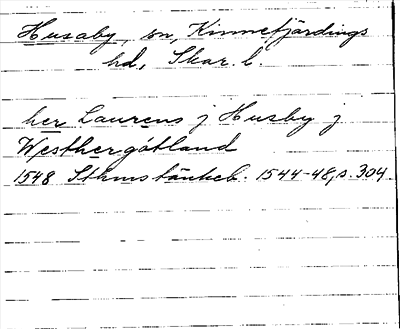 Husaby, sn, Kinnefjärdings
hd, Skar. l.
her Laurens j Husby j
Westhergötland
1548 Sthms tänkeb. 1544-48, s. 304.